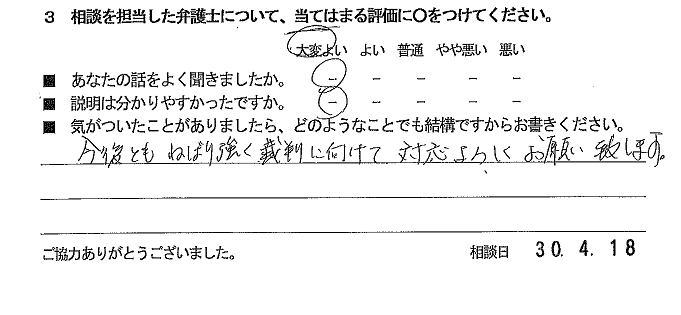 3 相談を担当した弁護士について、当てはまる評価に〇をつけてください。
大変よい よい 普通 やや悪い 悪い
■ あなたの話をよく聞きましたか。 － － － － －
■ 説明は分かりやすかったですか。 － － － － －
■ 気がついたことがありましたら、どのようなことでも結構ですからお書きください。
今後とも ねばり強く 裁判に向けて 対応よろしく お願い致します。
ご協力ありがとうございました。 相談日 30. 4. 18